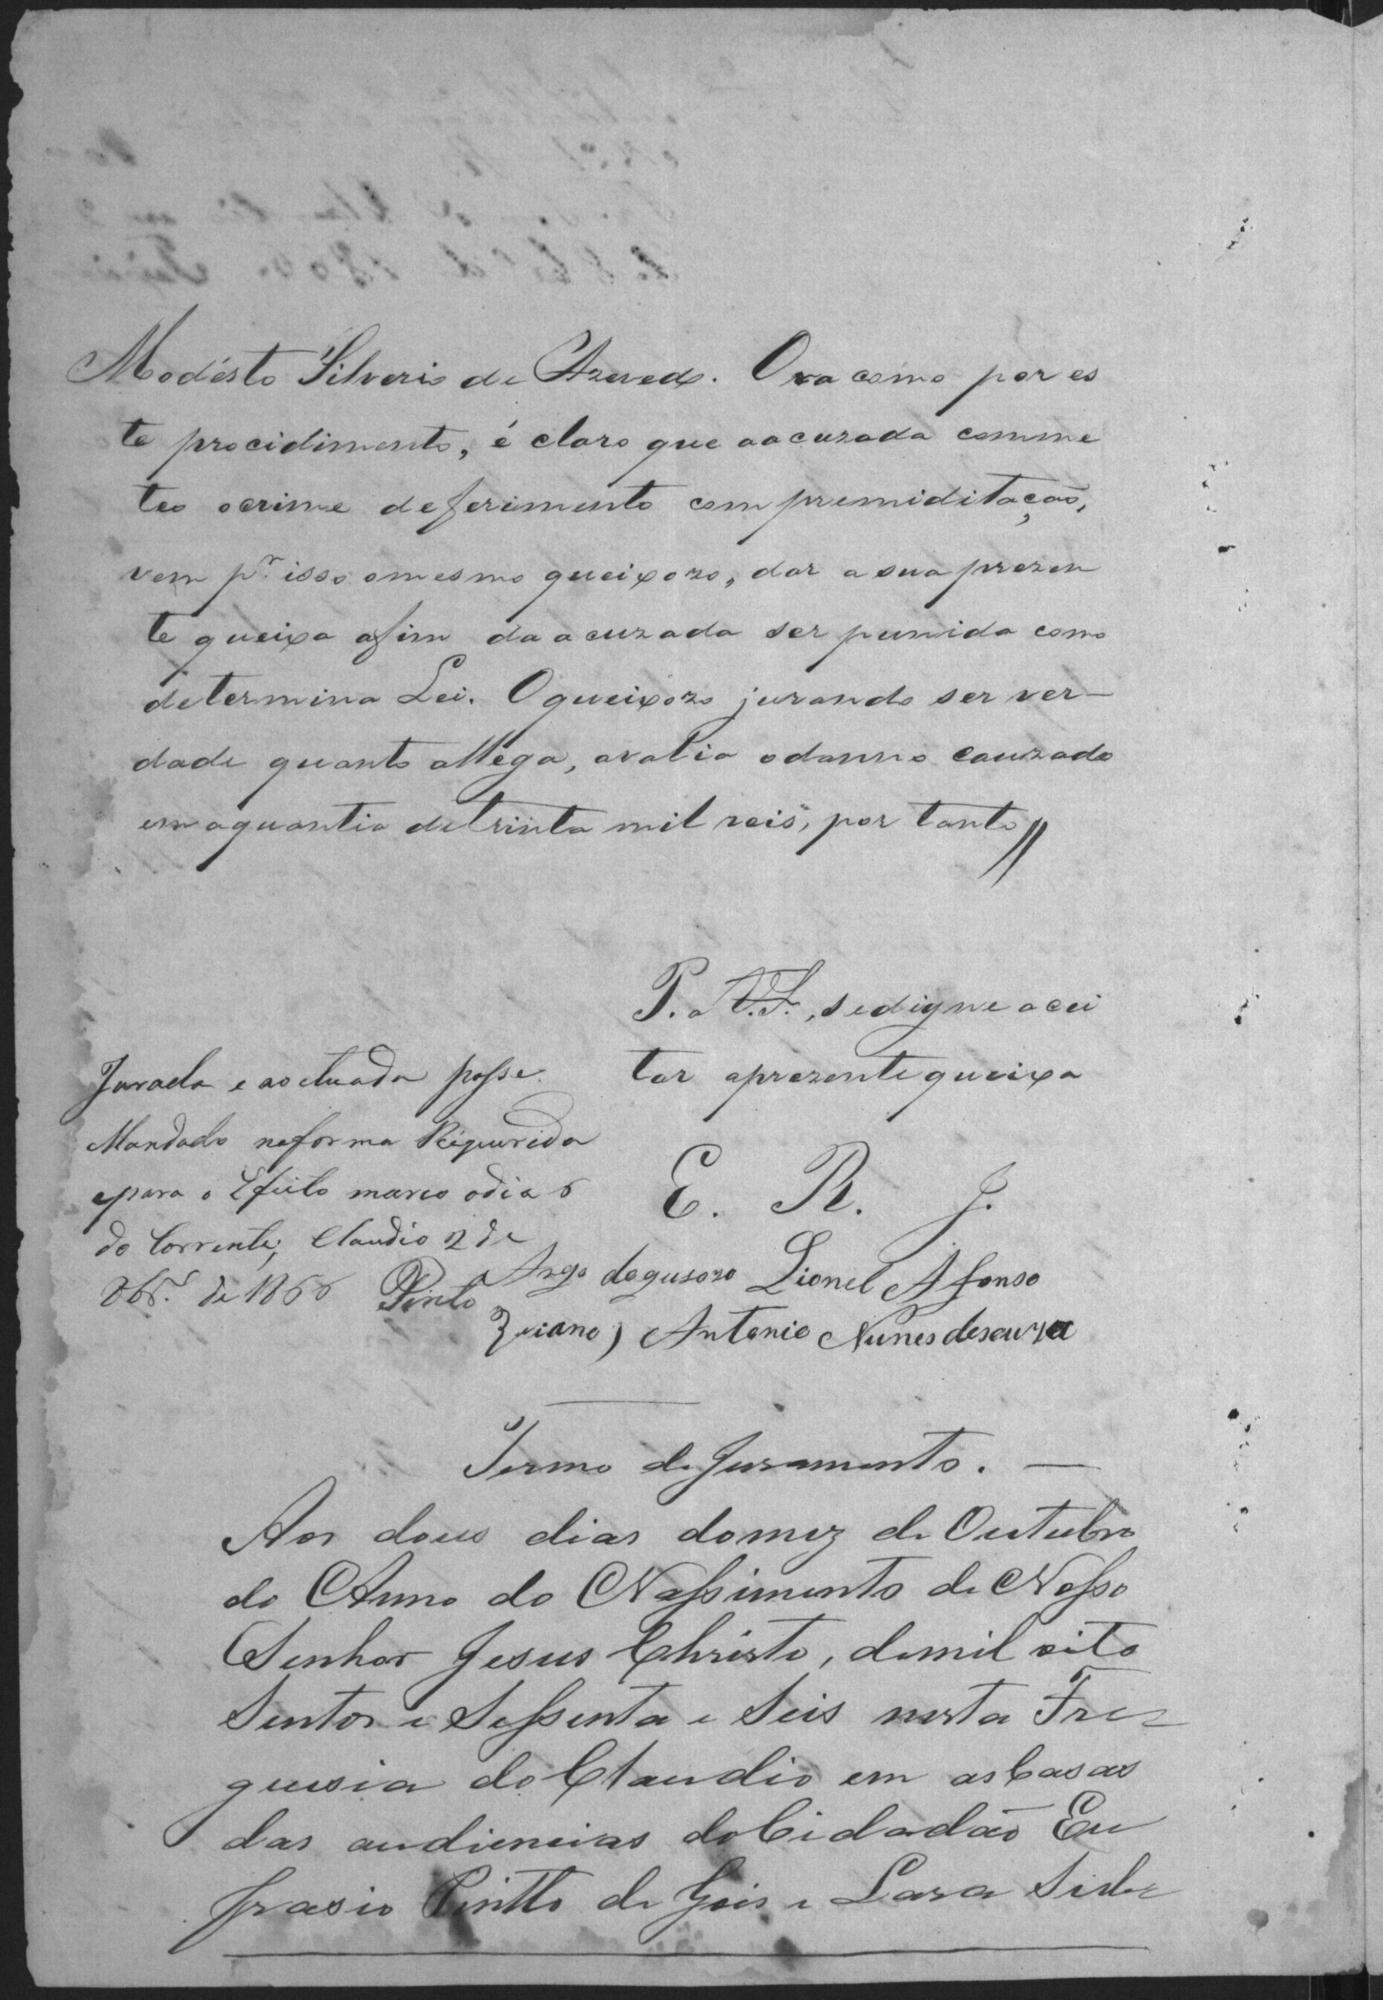 Modésto Silverio de Azevedo. Ora como por es
te procidimento, é claro que aacuzada comme
teo ocrime deferimento com premiditação,
vem pr. isso omesmo queixozo, dar a sua prezen
te queixa afim da acuzada ser punida como
determina Lei. Oqueixozo jurando ser ver-
dade quanto allega, avalia odanno cauzado
em aquantia detrinta mil reis, por tanto //
P. a V.S., sedigne acei
tar aprezente queixa
E. R. J.
Jurada e aoctuada passe
Mandado naforma Riqurida
epara o Efeito marco odia 6
do Corrente, Claudio 2 de
8br.º de 1866 Pinto
Argo doqusozo Lionel Afonso
Antonio Nunes desouza
Termo de Juramento. —
Aos dous dias domez de Outubro
do Anno do Nassimento de Nosso
Senhor Jesus Christo, demil oito
Sentos e Sessenta e Seis nesta Fre-
guesia do Claudio em as Casas
das audiencias do Cidadão Eu
frasio Pintto de Gois e Lara